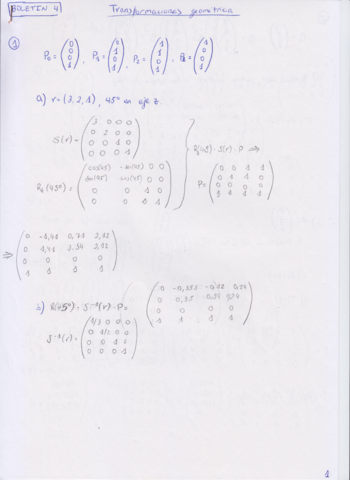 BOLETIN 4
Transformaciones geometria
1
P₀ = (0 0 0 1), P₁ = (0 1 0 1), P₂ = (1 1 0 1), P₃ = (1 0 0 1)
a) r = (3, 2, 1), 45º en eje z.
S(r) = (3 0 0 0
0 2 0 0
0 0 1 0
0 0 0 1)
R(45) · S(r) · P ⟹
R₂(45º) = (cos(45) -sen(45) 0 0
sen(45) cos(45) 0 0
0 0 1 0
0 0 0 1)
P = (0 0 1 1
0 1 1 0
0 0 0 0
1 1 1 1)
⟹ (0 -1,41 0,71 2,12
0 1,41 3,54 2,12
0 0 0 0
1 1 1 1)
R(45º) · S⁻¹(r) · P =
(0 -0,35 0,24
0 0,35 0,24
0 0 0 0
1 1 1 1)
S⁻¹(r) = (1/3 0 0 0
0 1/2 0 0
0 0 1 0
0 0 0 1)
1